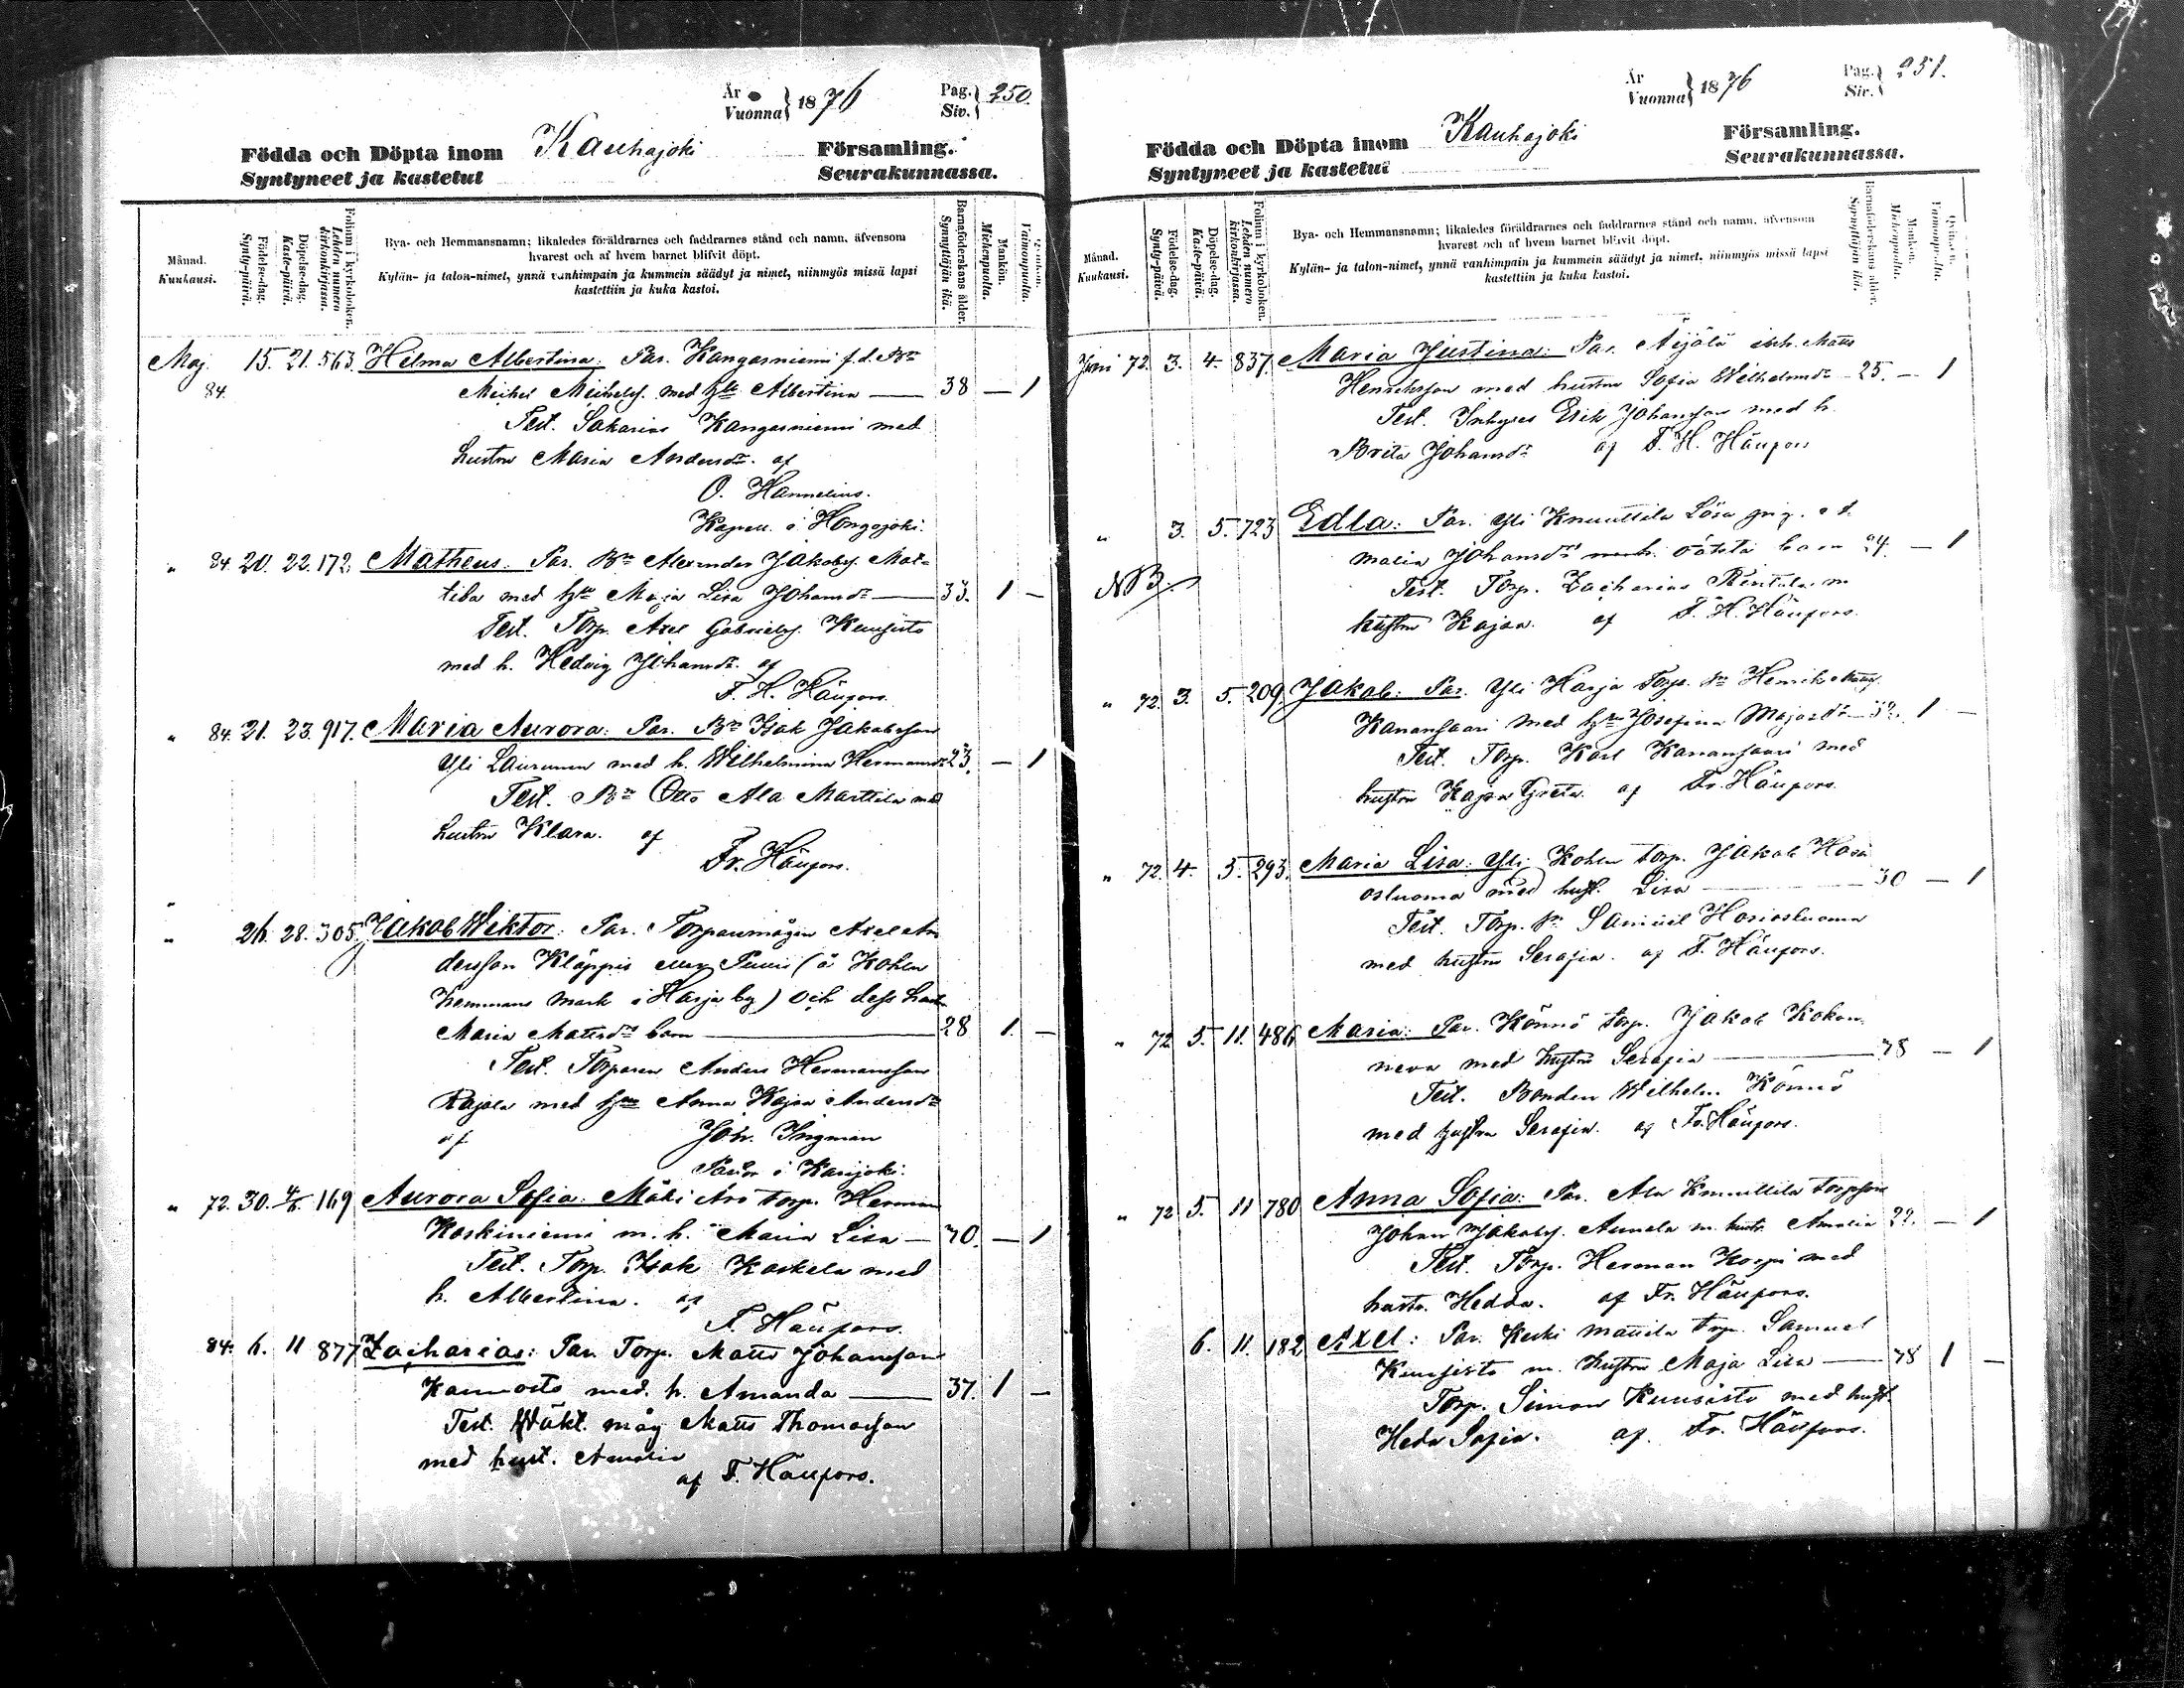 År
Vuonna } 1876
Pag.
Siv. } 250.
Födda och Döpta inom Kauhajoki Församling.
Syntyneet ja kastetut Seurakunnassa.
Månad.
Kuukausi.
Födelse-dag.
Synty-päivä.
Döpelse-dag.
Kaste-päivä.
Folium i kyrkoboken.
Lehden numero kirkonkirjassa.
Bya- och Hemmansnamn; likaledes föräldrarnes och faddrarnes stånd och namn, äfvensom
hvarest och af hvem barnet blifvit döpt.
Kylän- ja talon-nimet, ynnä vanhimpain ja kummein säädyt ja nimet, niinmyös missä lapsi
kastettiin ja kuka kastoi.
Barnaföderskans ålder.
Synnyttäjän ikä.
Mankön.
Miehenpuolta.
Vaimonpuolta.
Maj. 15. 21. 563. Helma Albertina: Par. Kangasniemi f.d. Bn
84. Michel Michelss. med hu Albertina — 38 — 1
Test. Sakarias Kangasniemi med
hustru Maria Andersdr. af
O. Hannelius.
Kapell. i Hongojoki.
" 84. 20. 22. 172. Matheus. Par. Bn Alexander Jakobs. Mat-
tila med hu Maja Lisa Johansdr — 33. 1 —
Test. Torp. Axel Gabrielss. Kuusisto
med h. Hedvig Johansdr. af
F. H. Häufors.
" 84. 21. 23. 917. Maria Aurora: Par. Bn Isak Jakobsson
Yli Laurunen med h. Wilhelmina Hermansdr 23. — 1
Test. Bn Otto Ala Marttila med
hustru Klara. af
Fr. Häufors.
"
" 26. 28. 305. Jakob Wiktor: Par. Torparemågen Axel An
dersson Kläppis (å Kohlu
hemmans mark i Harja by) och dess hustru
Maria Mattsdr barn — 28 1. —
Test. Torparen Anders Hermansson
Rajala med hu Anna Kajsa Andersdr
af Joh. Ingman
Pastor i Karijoki.
" 72. 30. 4/6. 169 Aurora Sofia: Mäki Aro torp. Herman
Koskiniemi m. h. Maria Lisa — 40. — 1
Test. Torp. Isak Koskela med
h. Albertina. af
F. Häufors.
84. 6. 11 877 Zacharias: Par. Torp. Matts Johansson
Kannosto med h. Amanda — 37. 1 —
Test. måg Matts Thomasson
med hust. Amalia
af F. Häufors.
År
Vuonna } 1876
Pag.
Siv. } 251.
Födda och Döpta inom Kauhajoki Församling.
Syntyneet ja kastetut Seurakunnassa.
Månad.
Kuukausi.
Födelse-dag.
Synty-päivä.
Döpelse-dag.
Kaste-päivä.
Folium i kyrkoboken.
Lehden numero kirkonkirjassa.
Bya- och Hemmansnamn; likaledes föräldrarnes och faddrarnes stånd och namn, äfvensom
hvarest och af hvem barnet blifvit döpt.
Kylän- ja talon-nimet, ynnä vanhimpain ja kummein säädyt ja nimet, niinmyös missä lapsi
kastettiin ja kuka kastoi.
Barnaföderskans ålder.
Synnyttäjän ikä.
Mankön.
Miehenpuolta.
Vaimonpuolta.
Juni 72. 3. 4. 837. Maria Justina: Par. Äijälä inh. Matts
Henriksson med hustru Sofia Wilhelmsdr — 25. — 1
Test. Inhyses Erik Johansson med h.
Brita Johansdr af F. H. Häufors
" 3. 5. 723 Edla: Par. Yli Knuuttila Lösa pig.
malia Johansdr oäkta barn 24. — 1
NB. Test. Torp. Zacharias Rintala m
hustru Kajsa. af F. H. Häufors.
" 72. 3. 5. 209. Jakob: Par. Yli Harja Torp. sn Henrik Mattss.
Kananhaari med hu Josefina Majasdr — 1 —
Test. Torp. Karl Kananhaari med
hustru Kajsa Greta. af Fr. Häufors.
" 72. 4. 5. 293. Maria Lisa: Yli Kohlu torp. Jakob Hosi
osluoma med hust. Lisa — 30 — 1
Test. Torp. sn Samuel Hosiosluoma
med hustru Serafia. af F. Häufors.
" 72 5. 11. 486 Maria: Par. Könnö torp. Jakob Kokon
neva med hustru Serafia — 48 — 1
Test. Bonden Wilhelm Könnö
med hustru Serafia. af Fr. Häufors.
" 72 5. 11 780 Anna Sofia: Par. Ala Knuuttila torpson
Johan Jakobss. Annala m. hustr. Amalia 22. — 1
Test. Torp. Herman Korpi med
hustr. Hedda. af Fr. Häufors.
6. 11. 182 Axel: Par. Keski Mattila torp. Samuel
Kuusisto m. hustru Maja Lisa — 48 1 —
Torp. Simon Kuusisto med hust.
Heda Sofia. af Fr. Häufors.